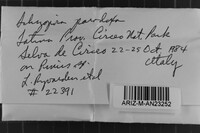 Asterostroma
Latina Prov. Circeo Nat. Park
Selva de Circeo 22-25 Oct 1984
on Pinus sp. Italy
L. Ryvarden et al
# 22391
ARIZ-M-AN23252